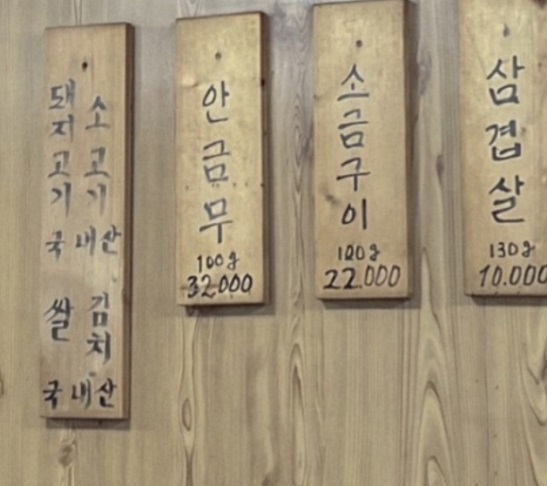 돼지고기 소고기
국내산
쌀 김치
국내산
안금무
100g
32.000
소금구이
100g
22.000
삼겹살
130g
10.000